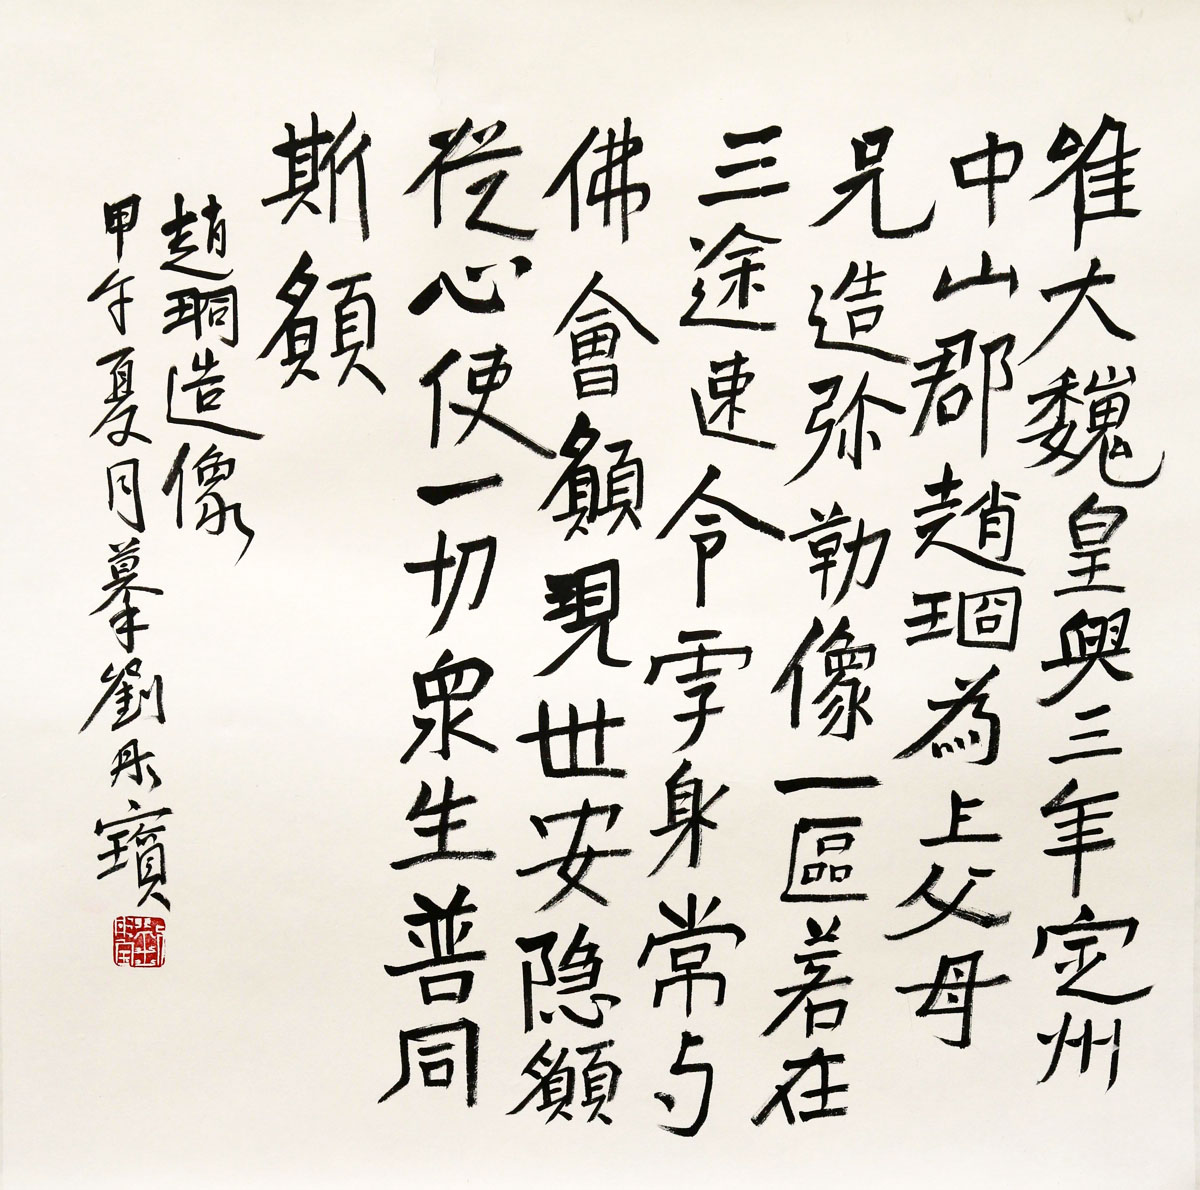 唯大魏皇興三年定州
中山郡趙珚為上父母
兄造弥勒像一區若在
三途速令解身常与
佛會願現世安隐願
從心使一切眾生普同
斯願
趙珚造像
甲午夏月摹劉彤寶